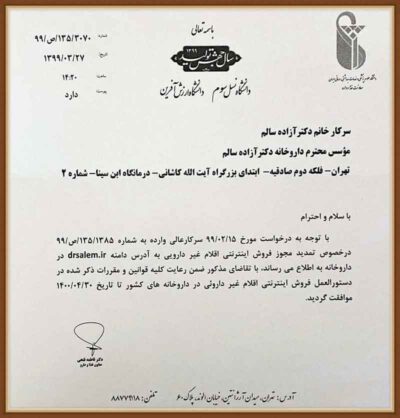 باسمه تعالی
سال جهش تولید
۱۳۹۹
دانشگاه نسل سوم دانشگاه ارزش آفرین
شماره ۹۹/ص/۱۳۵/۳۰۷۰
تاریخ ۱۳۹۹/۰۳/۲۷
ساعت ۱۴:۲۰
پیوست دارد
سرکار خانم دکتر آزاده سالم
مؤسس محترم داروخانه دکتر آزاده سالم
تهران- فلکه دوم صادقیه- ابتدای بزرگراه آیت الله کاشانی- درمانگاه ابن سینا- شماره ۲
با سلام و احترام
با توجه به درخواست مورخ ۹۹/۰۲/۱۵ سرکارعالی وارده به شماره ۹۹/ص/۱۳۵/۱۳۸۵
درخصوص تمدید مجوز فروش اینترنتی اقلام غیر دارویی به آدرس دامنه drsalem.ir در
داروخانه به اطلاع می رساند، با تقاضای مذکور ضمن رعایت کلیه قوانین و مقررات ذکر شده در
دستورالعمل فروش اینترنتی اقلام غیر داروئی در داروخانه های کشور تا تاریخ ۱۴۰۰/۰۴/۳۰
موافقت گردید.
دکتر فاطمه فتحی
معاون غذا و دارو
آدرس: تهران، میدان آرژانتین، خیابان الوند، پلاک ۶۰ تلفن: